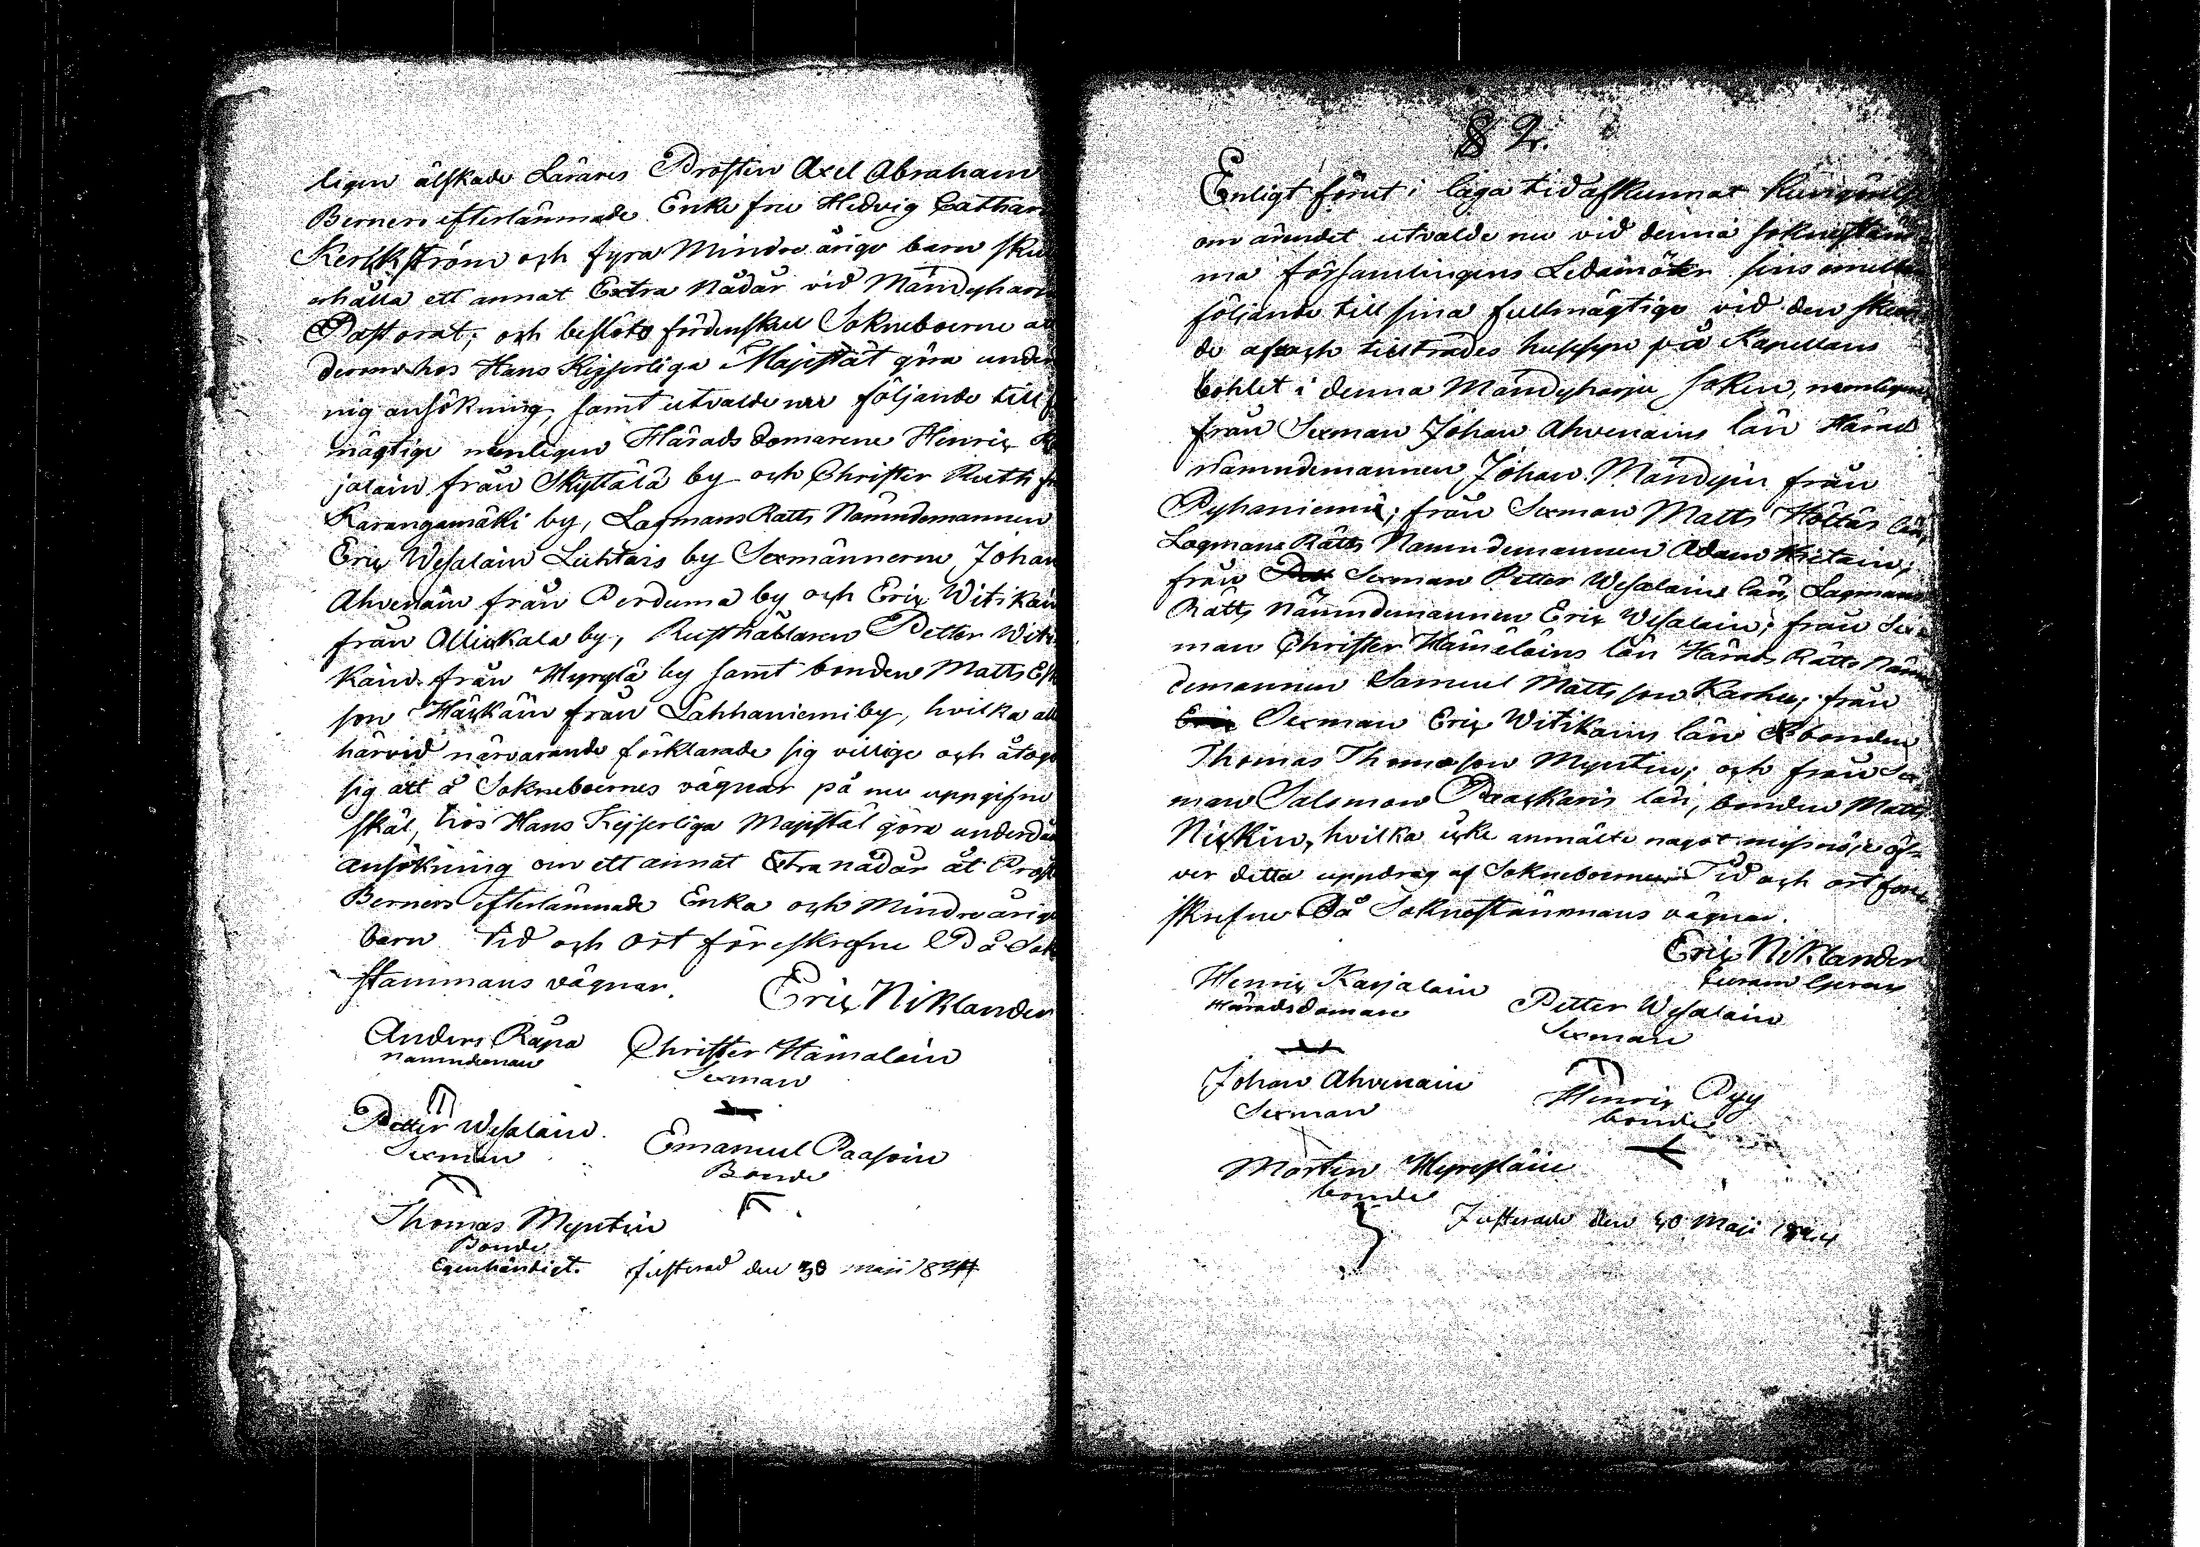 ligen älskade Lärares Prosten Axel Abraham
Berners efterlämnade Enke fru Hedvig Cathar
och fyra Mindre årige barn sku
erhålla ett annat Extra Nådår vid Mändyharju
Pastorat; och beslöto fördenskull Sokneboerne at
hos Hans Kejserliga Majestät göra under
nig ansökning, samt utvalde nu följande till f
mägtige nemligen Härads domarene Henrix K
jalain från Skyttälä by och Christer Rutti fr
Karangamäki by, Lagmans Rätts Nämndemannen
Erix Wesalain Luhtais by Sexmännerne Johan
Ahvenain från Perduma by och Erix Witikain
från Ollickala by, Rusthållaren Petter Witi
kain från Hyrylä by samt bonden Matts Es
son Häckäin från Lahhaniemi by, hvilka all
härvid närvarande förklarade sig villige och åtogo
sig att å Sokneboernes vägnar på nu uppgifne
skäl, hos Hans Kejserliga Majestät göra underdå
ansökning om ett annat Extra nådår åt Prost
Berners efterlämnade Enka och Mindre årige
barn Tid och Ort föreskrefne På Sok
stämmans vägnar.
Erix Niklander
Anders Räpa
Nämndeman
Christer Hämäläin
Sexman
Petter Wesalain
Sexman
Emanuel Paasoin
Bonde
Thomas Myntin
Bonde
Egenhändigt.
justerad den 30 Maji 1824
§ 2.
Enligt förut i laga tid afkunnat Kungörelse
om ärendet utvalde nu vid denna soknestäm
ma församlingens Ledamöter sins emellan
följande till sina fullmägtige vid den skeen
de af och tilltrades hussyn på Kapellans
bohlet i denna Mändyharju Soken, nemligen
från Sexman Johan Ahvenains län Härads
Nämndemannen Johan Mändyin från
Pyhaniemi; från Sexman Matts län,
Lagmans Rätts Nämndemannen Adam
från Sexman Petter Wesalains län Lagmans
Rätts Nämndemannen Erix Wesalain; från Sex
man Christer Hämäläins län Härads Rätts Näm
demannen Samuel Mattsson Karhu; från
Sexman Erix Witikains län bonden
Thomas Thomasson Myntin; och från Sex
man Salomon Paaskoins län, bonden Matts
Nickin, hvilka icke anmälte något missnöje öf
ver detta uppdrag af Sokneboerne Tid och ort före
skrefne På Soknestämmans vägnar.
Erix Niklander
Henrix Karjalain
Häradsdomare
Petter Wesalain
Sexman
Johan Ahvenain
Sexman
Henrix Pyy
bonde
Morten Hyryläin
bonde
Justerade den 30 Maji 1824